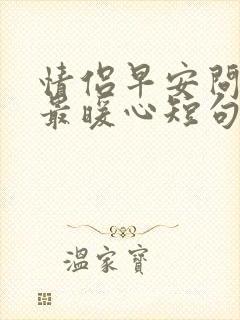 情侣早安问
最暖心短句
温家宝